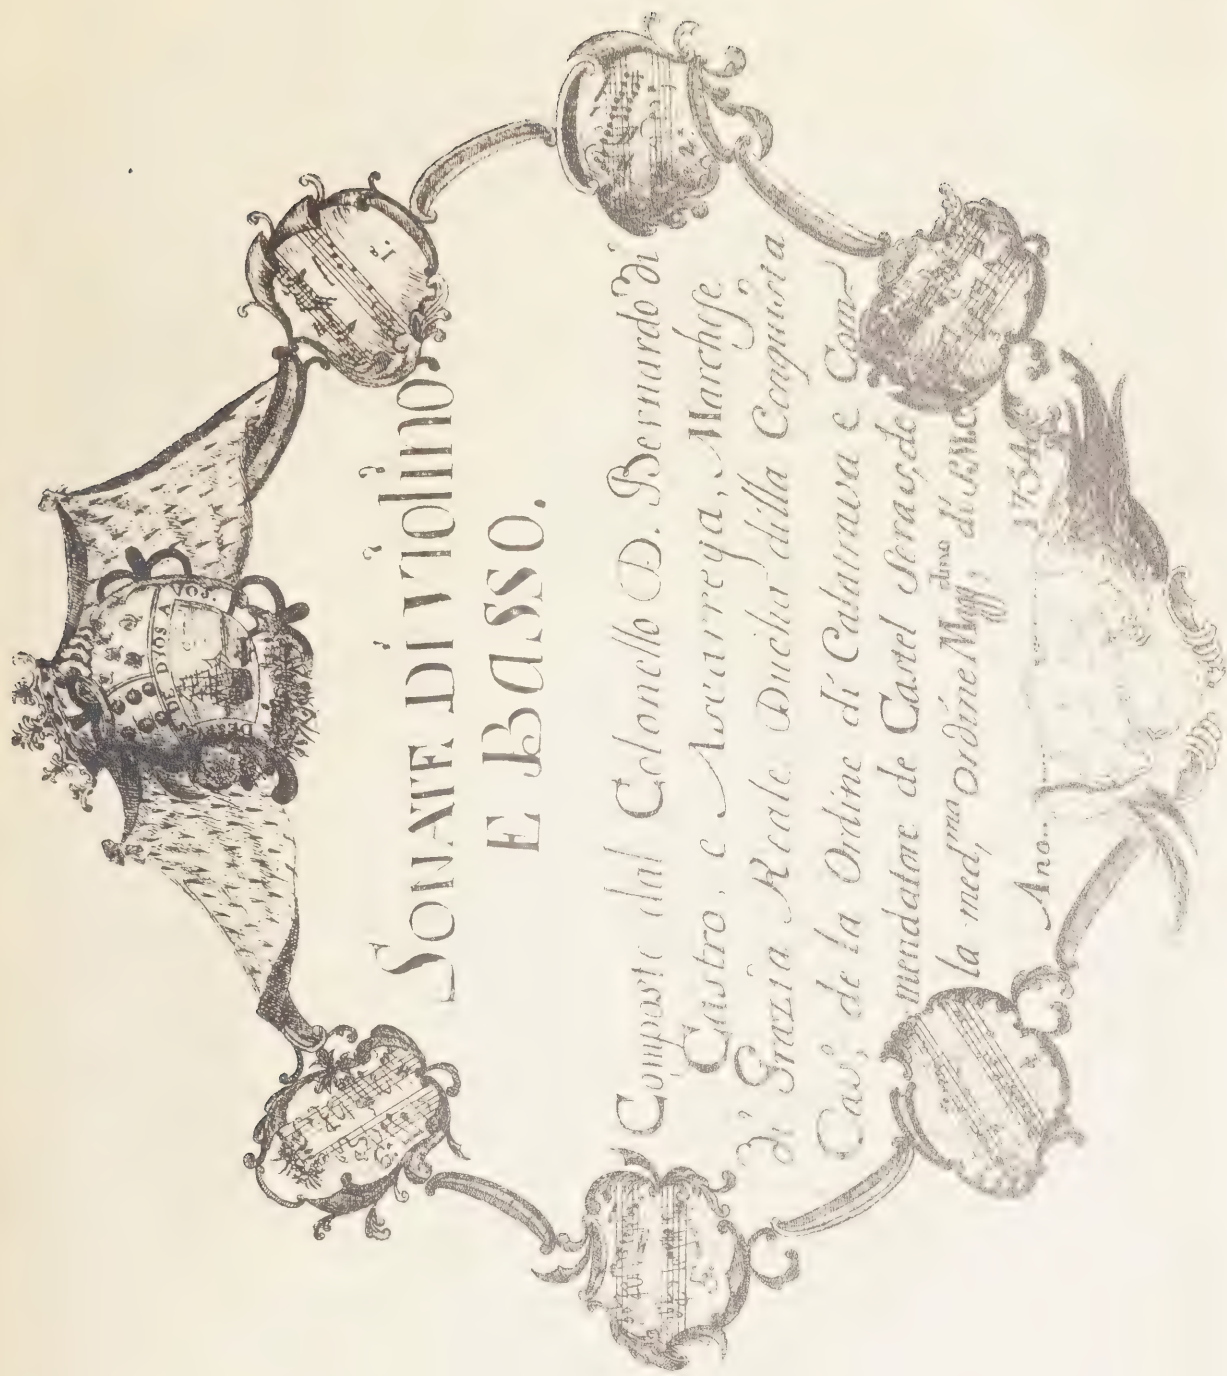 DE DIOS A VOS.
SONATE DI VIOLINO,
E BASSO.
Composte dal Colonello D. Bernardo di
Castro, e Ascarrega, Marchese
di Grazia Reale, Duchu della Conquista
Cav.º de la Ordine di Calatrava e Com-
mendatore de Castel Seraș de
la med,ma Ordine Magg,dmo di S.M.C.
Ano... 1754